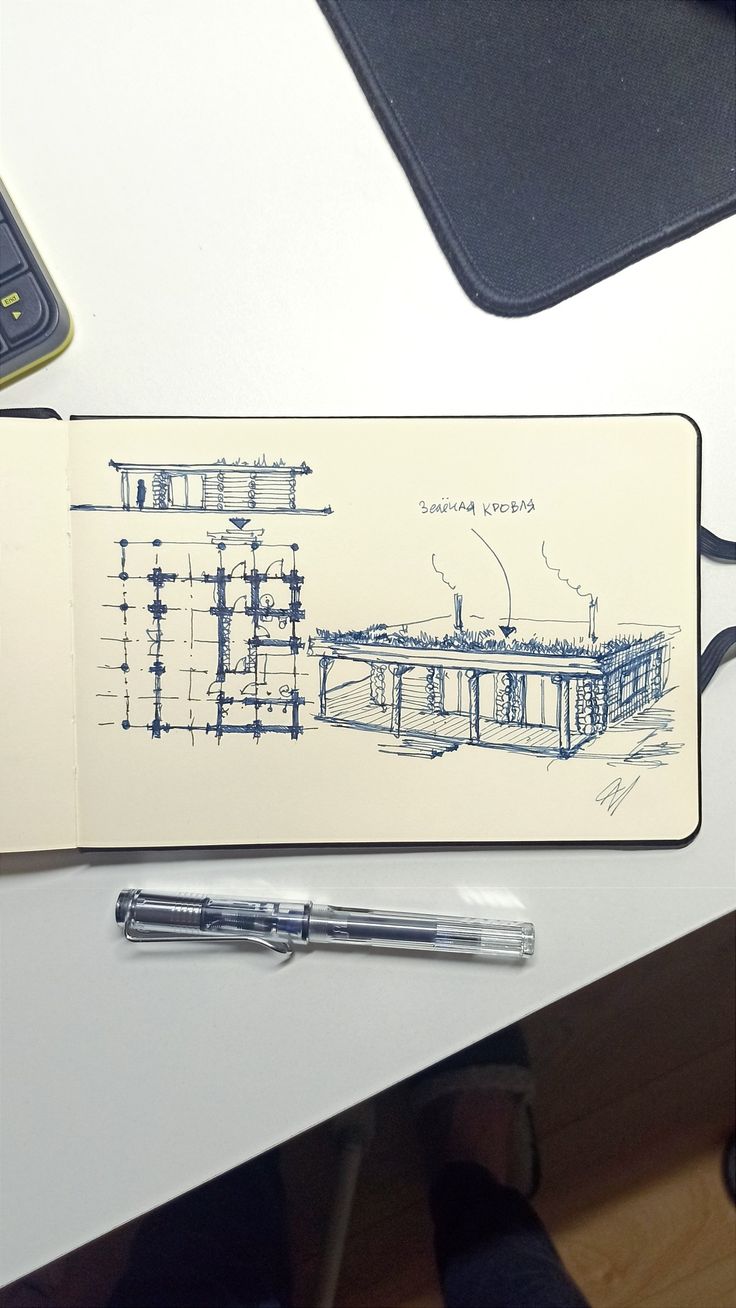 End
зелёная кровля